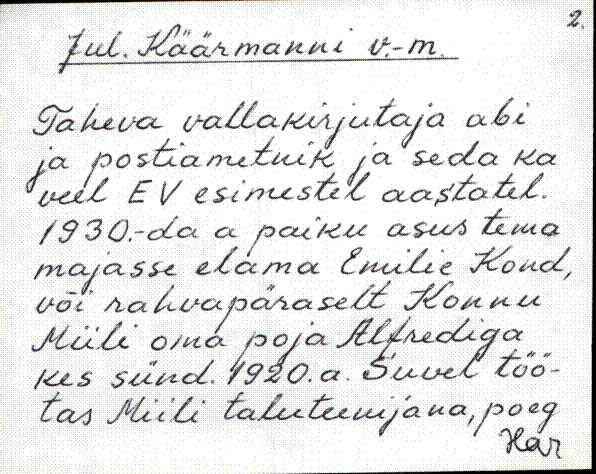 2.
Jul. Käärmanni v.-m.
Taheva vallakirjutaja abi
ja postiametnik ja seda ka
veel EV esimestel aastatel.
1930.-da a paiku asus tema
majasse elama Emilie Kond,
või rahvapäraselt Konnu
Miili oma poja Alfrediga
kes sünd. 1920.a. Suvel töö-
tas Miili taluteenijana, poeg
Har